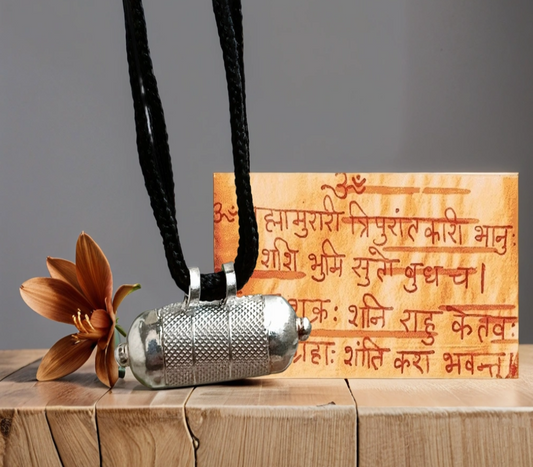 ॐ
ॐ ह्मामुरारी त्रिपुरांत कारी भानुः
शशि भुमि सुतो बुध च।
क्रः शनि राहु केतवः
ग्रहाः शंति करा भवन्त।